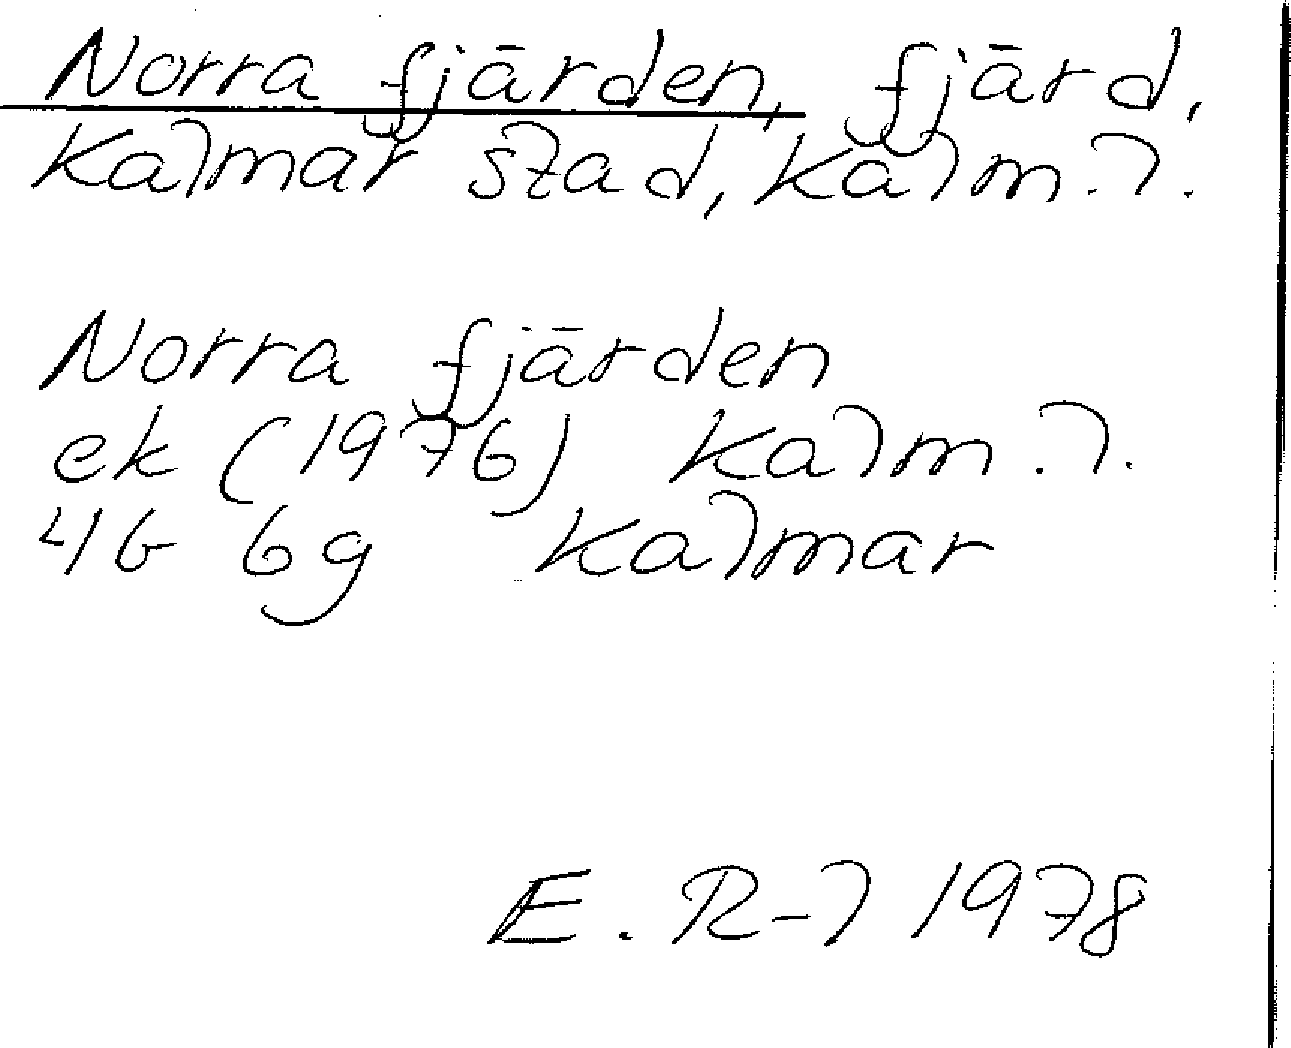 Norra fjärden, fjärd,
Kalmar stad, Kalm.l.
Norra fjärden
ek (1976) Kalm.l.
4G 6g Kalmar
E. R-l 1978